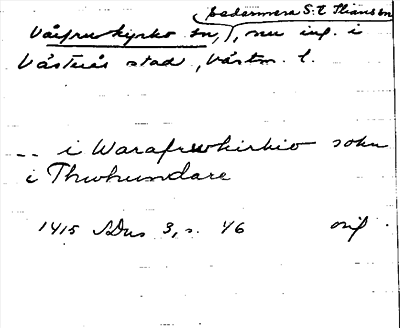 sedermera S:t Ilians sn
Vårfrukyrko sn, nu inf. i
Västerås stad, Västm. l.
-- i Warafrwkirkio sokn
i Thwhundare
1415 SDns 3, s. 46 orig.